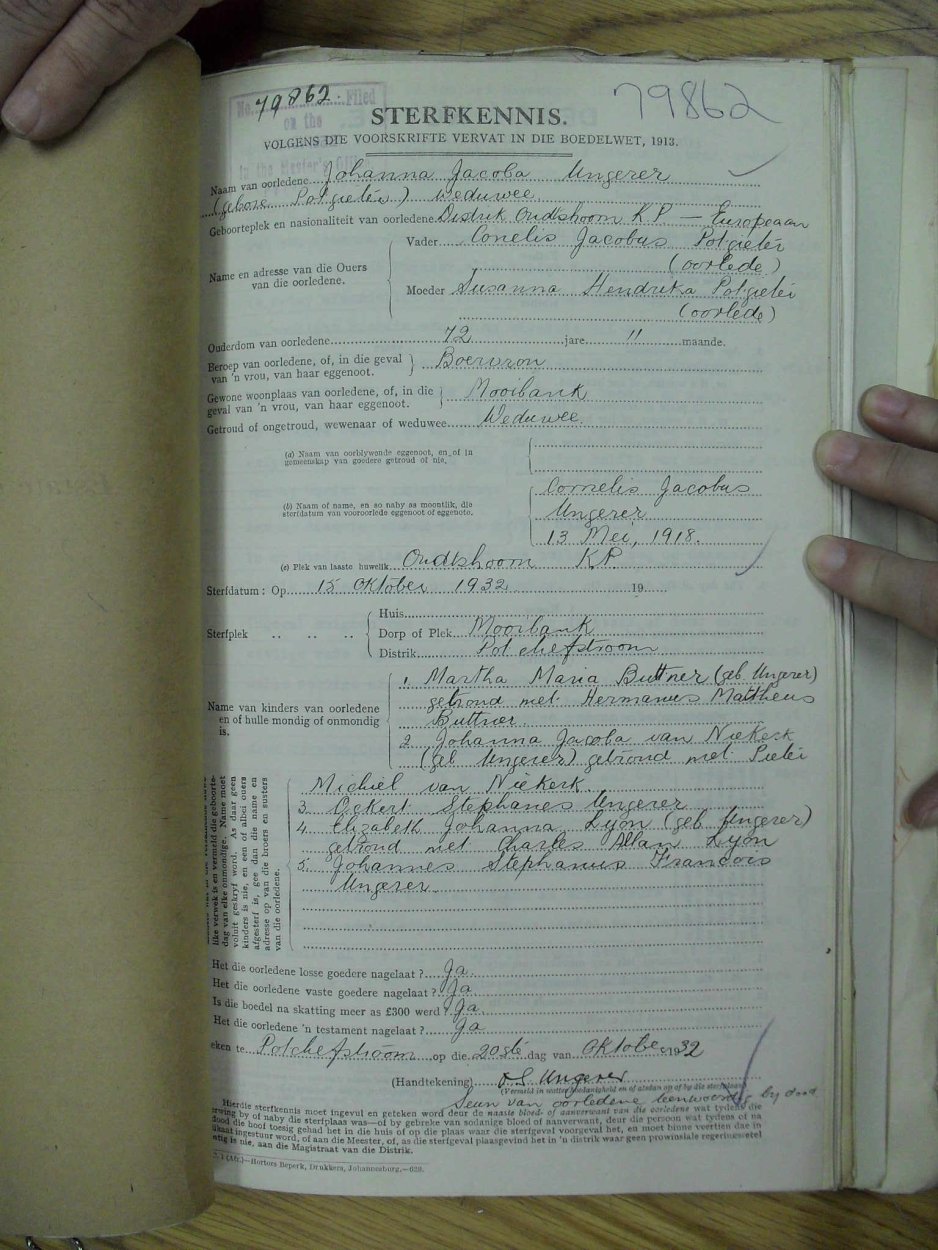 No. 79862. Filed
on the
in the Master's Office
79862
STERFKENNIS.
VOLGENS DIE VOORSKRIFTE VERVAT IN DIE BOEDELWET, 1913.
Naam van oorledene Johanna Jacoba Ungerer
(gebore Potgieter) Weduwee.
Geboorteplek en nasionaliteit van oorledene Distrik Oudtshoorn K.P. — Europeaan
Name en adresse van die Ouers van die oorledene.
Vader Conelis Jacobus Potgieter
(oorlede)
Moeder Susanna Hendrika Potgieter
(oorlede)
Ouderdom van oorledene 72 jare 11 maande.
Beroep van oorledene, of, in die geval van 'n vrou, van haar eggenoot. } Boervrou
Gewone woonplaas van oorledene, of, in die geval van 'n vrou, van haar eggenoot. } Mooibank
Getroud of ongetroud, wewenaar of weduwee Weduwee.
(a) Naam van oorblywende eggenoot, en of in gemeenskap van goedere getroud of nie.
(b) Naam of name, en so naby as moontlik, die sterfdatum van vooroorlede eggenoot of eggenote.
Cornelis Jacobus
Ungerer
13 Mei, 1918.
(c) Plek van laaste huwelik Oudtshoorn K.P.
Sterfdatum: Op 15 Oktober 1932 19
Sterfplek
Huis
Dorp of Plek Mooibank
Distrik Potchefstroom
Name van kinders van oorledene en of hulle mondig of onmondig is.
1. Martha Maria Buttner (geb. Ungerer)
getroud met Hermanus Mattheus
Buttner.
2. Johanna Jacoba van Niekerk
(geb Ungerer) getroud met Pieter
Michiel van Niekerk
3. Ockert Stephanes Ungerer
4. Elizabeth Johanna Lyon (geb. Ungerer)
getroud met Charles Allan Lyon
5. Johannes Stephanus Francois
Ungerer
like verwek is en vermeld die geboorte-
dag van elke onmondige. Name moet
voluit geskryf word. As daar geen
kinders is nie, en een of albei ouers
afgesterf is, gee dan die name en
adresse op van die broers en susters
van die oorledene.
Het die oorledene losse goedere nagelaat? Ja.
Het die oorledene vaste goedere nagelaat? Ja
Is die boedel na skatting meer as £300 werd? Ja
Het die oorledene 'n testament nagelaat? Ja
eken te Potchefstroom op die 20ste dag van Oktober 1932
(Handtekening) O S Ungerer
(Vermeld in watter hoedanigheid en of atdan op of by die sterfplaas)
Seun van oorledene teenwoordig by dood
Hierdie sterfkennis moet ingevul en geteken word deur de naaste bloed- of aanverwant van die oorledene wat tydens die
erwing by of naby die sterfplaas was—of by gebreke van sodanige bloed of aanverwant, deur die persoon wat tydens of na
dood die hoof toesig gehad het in die huis of op die plaas waar die sterfgeval voorgeval het, en moet binne veertien dae in
ikaat ingestuur word, of aan die Meester, of, as die sterfgeval plaasgevind het in 'n distrik waar geen prowinsiale regeringsetel
stig is nie, aan die Magistraat van die Distrik.
J. 1 (Afr.)—Hortors Beperk, Drukkers, Johannesburg.—629.